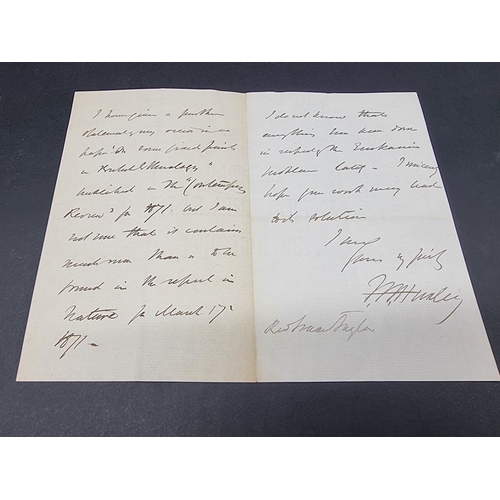 I have given a further
statement of my views in a
paper "On some fixed points
in British Ethnology"
published in the "Contemporary
Review" for 1871. but I am
not sure that it contains
much more than is to be
found in the report in
Nature for March 17th
1871 -
I do not know that
anything has been done
in respect of the Euskarian
problem later - I sincerely
hope your work may lead
to its solution
I am
yours very faithfully
T. H. Huxley
Rev Isaac Taylor